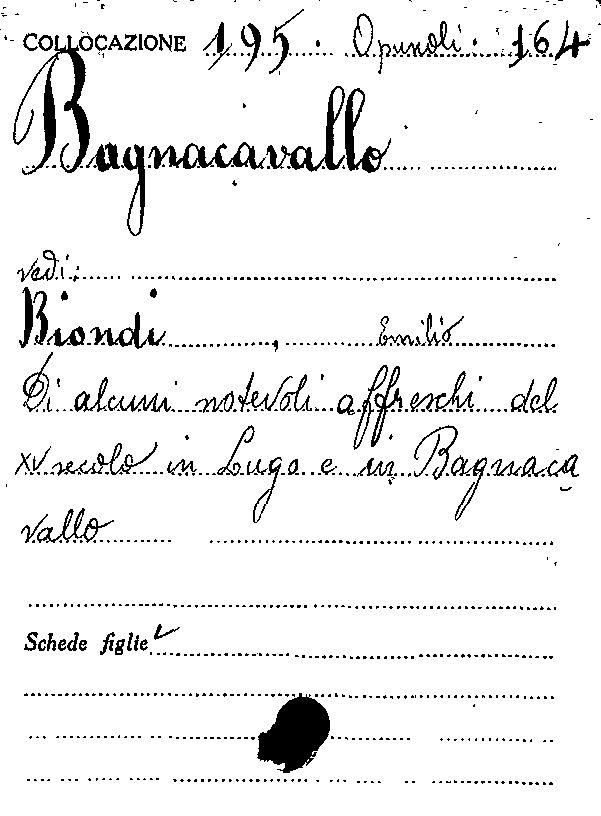 COLLOCAZIONE 195. Opuscoli. 164
Bagnacavallo
vedi:
Biondi, Emilio
Di alcuni notevoli affreschi del
XV secolo in Lugo e in Bagnaca
vallo
Schede figlie